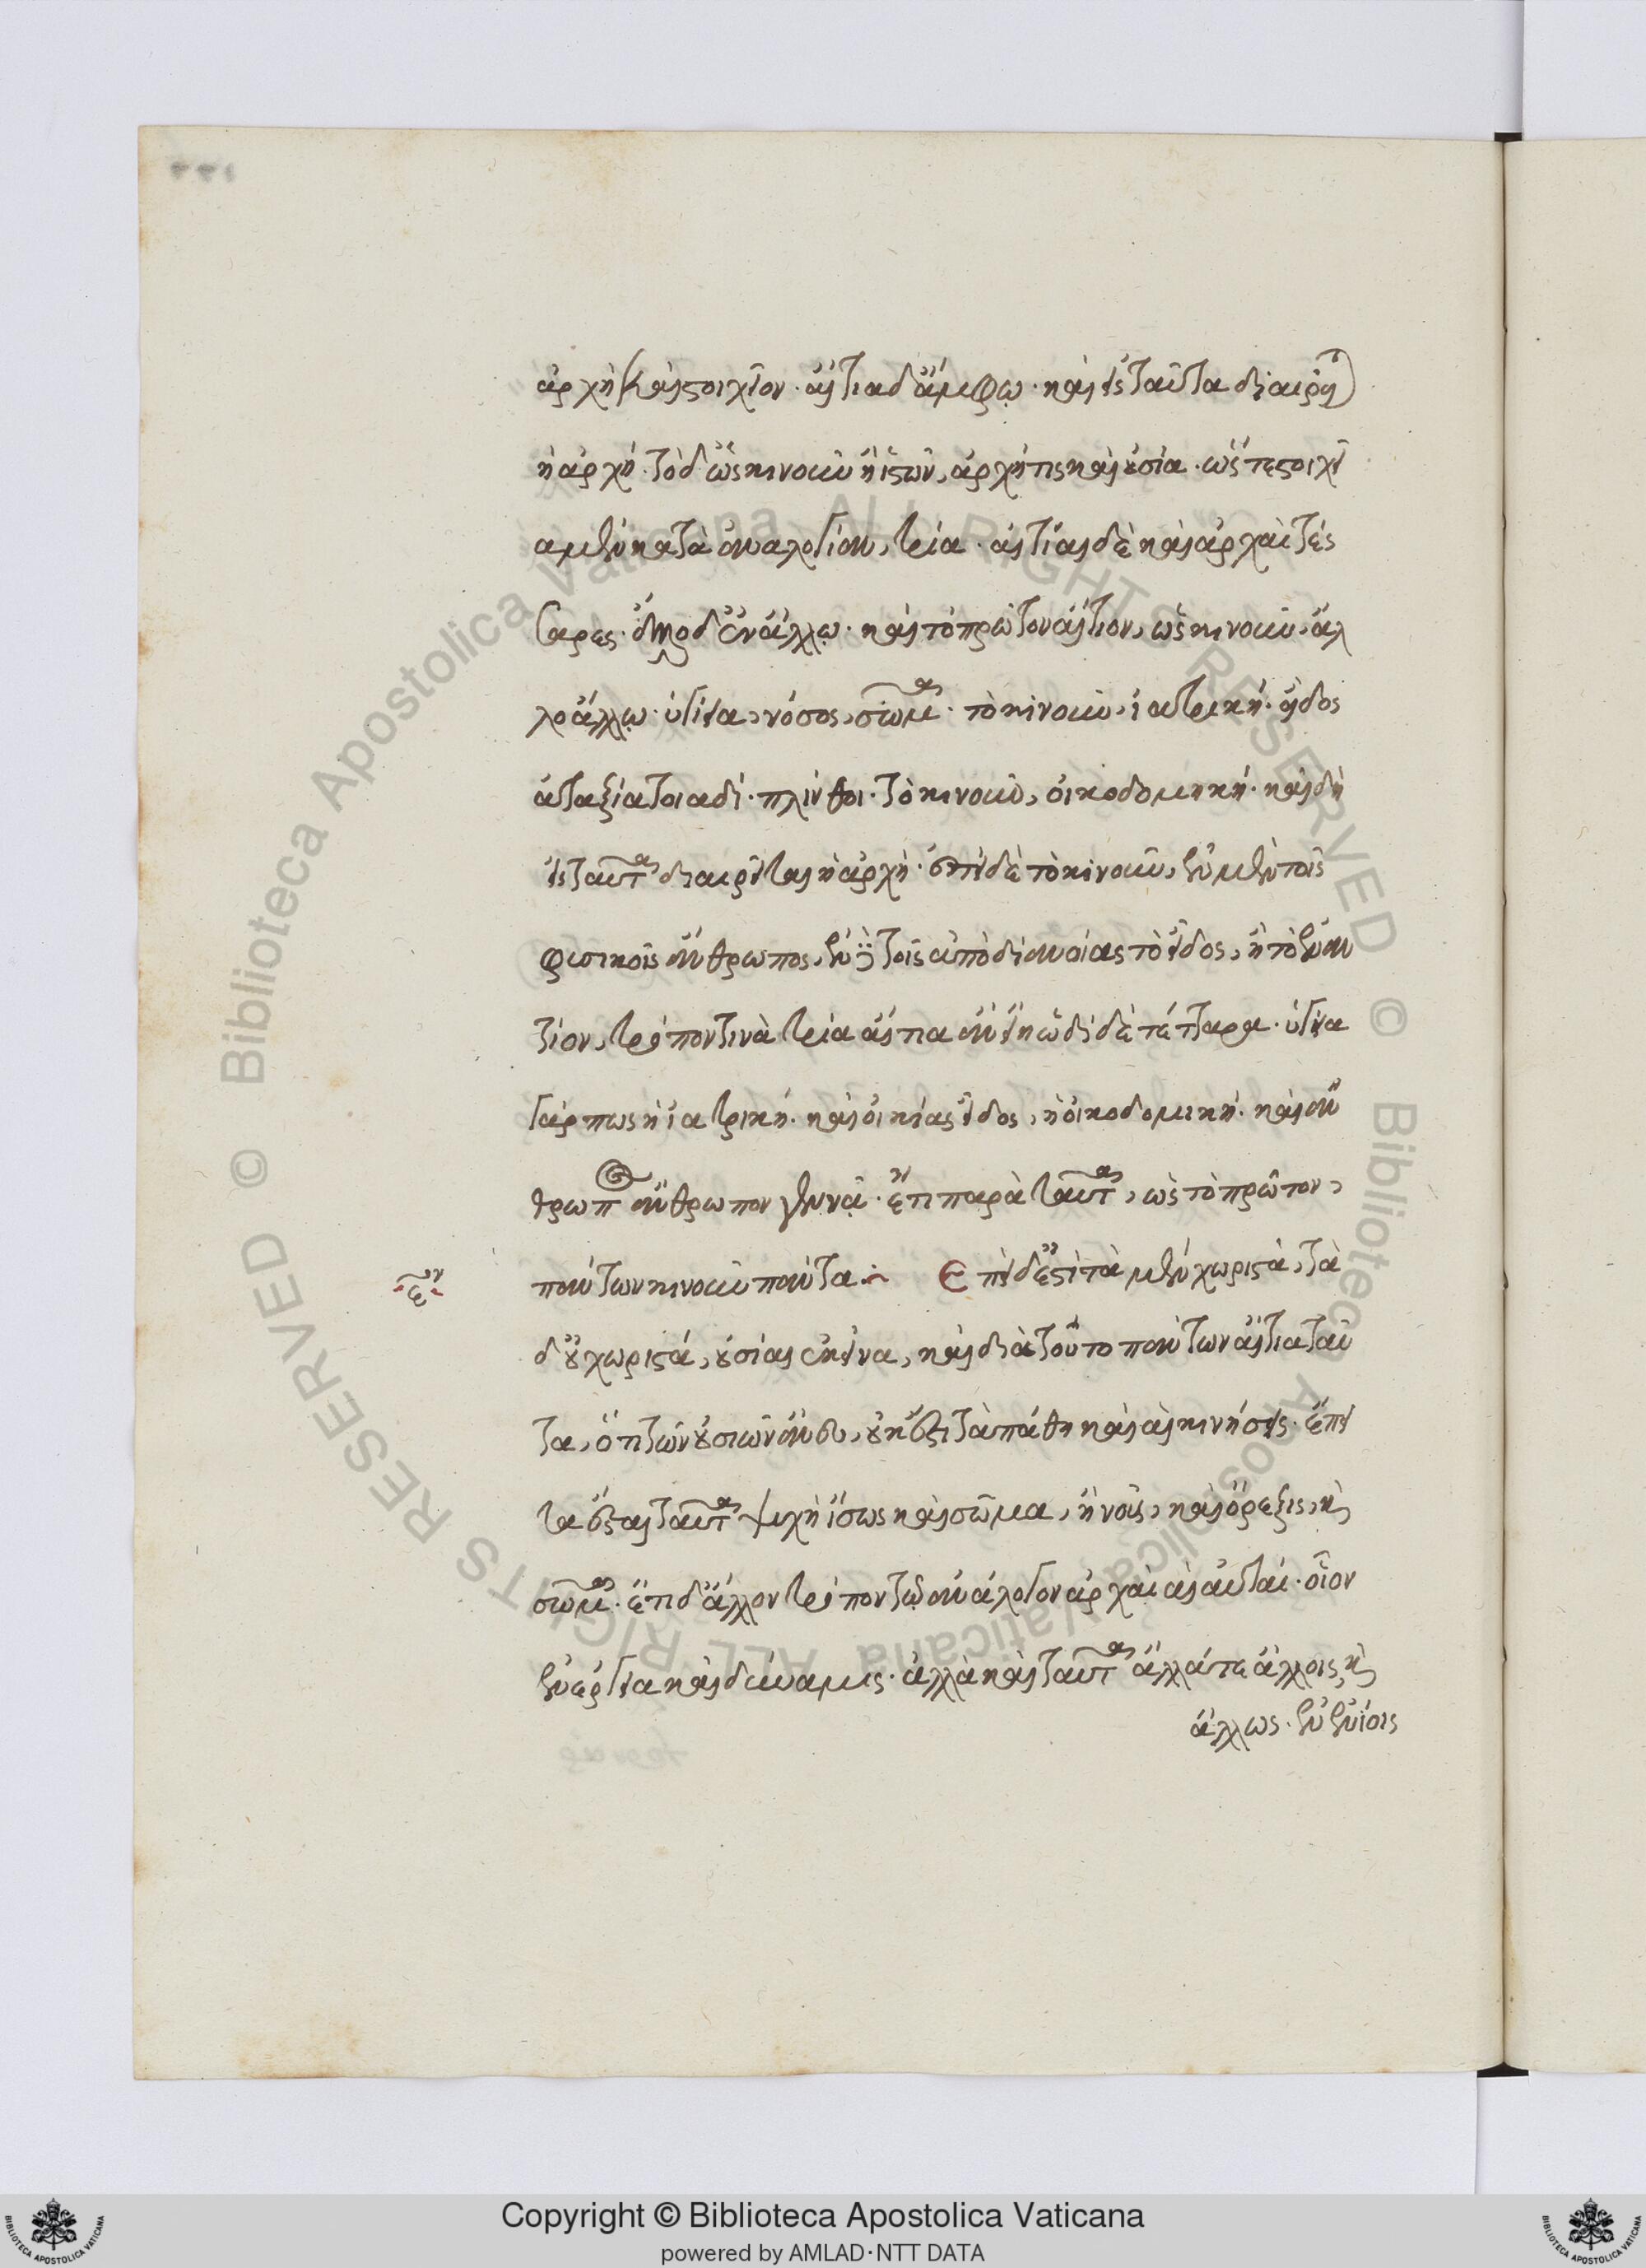 ἀρχὴ καὶ στοιχεῖον· αἴτια δ' ἄμφω· καὶ εἰς ταῦτα διαιρεῖται
ἡ ἀρχή· τὸ δ' ὡς κινοῦν ἢ ἱστῶν, ἀρχή τις καὶ οὐσία· ὥστε στοιχεῖ
α μὲν κατὰ ἀναλογίαν, τρία· αἰτίαι δὲ καὶ ἀρχαὶ τές
σαρες· ἄλλο δ' ἐν ἄλλῳ· καὶ τὸ πρῶτον αἴτιον, ὡς κινοῦν, ἄλ
λο ἄλλῳ· ὑγίεια, νόσος, σῶμα· τὸ κινοῦν, ἰατρική· εἶδος
ἀταξία τοιαδί· πλίνθοι· τὸ κινοῦν, οἰκοδομική· καὶ δὴ
εἰς ταῦτα διαιρεῖται ἡ ἀρχή· ἐπεὶ δὲ τὸ κινοῦν, ἐν μὲν τοῖς
φυσικοῖς ἄνθρωπος, ἐν δὲ τοῖς ἀπὸ διανοίας τὸ εἶδος, ἢ τὸ ἐναν
τίον, τρόπον τινὰ τρία αἴτια ἂν εἴη ὡδὶ δὲ τέτταρα· ὑγίεια
γάρ πως ἡ ἰατρική· καὶ οἰκίας εἶδος, ἡ οἰκοδομική· καὶ ἄν
θρωπος ἄνθρωπον γεννᾷ· ἔτι παρὰ ταῦτα, ὡς τὸ πρῶτον,
πάντων κινοῦν πάντα: Ἐπεὶ δ' ἐστὶ τὰ μὲν χωριστά, τὰ
δ' οὐ χωριστά, οὐσίαι ἐκεῖνα, καὶ διὰ τοῦτο πάντων αἴτια ταῦ
τα, ὅτι τῶν οὐσιῶν ἄνευ, οὐκ ἔστι τὰ πάθη καὶ αἱ κινήσεις· ἔπει
τα ἔσται ταῦτα ψυχὴ ἴσως καὶ σῶμα, ἢ νοῦς, καὶ ὄρεξις, καὶ
σῶμα· ἔτι δ' ἄλλον τρόπον τῷ ἀνάλογον ἀρχαὶ αἱ αὐταί· οἷον
ἐνέργεια καὶ δύναμις· ἀλλὰ καὶ ταῦτα ἄλλά τε ἄλλοις καὶ
ἄλλως· ἐν ἐνίοις
Copyright © Biblioteca Apostolica Vaticana
powered by AMLAD·NTT DATA
© Biblioteca Apostolica Vaticana ALL RIGHTS RESERVED © Biblioteca Apostolica Vaticana ALL RIGHTS RESERVED